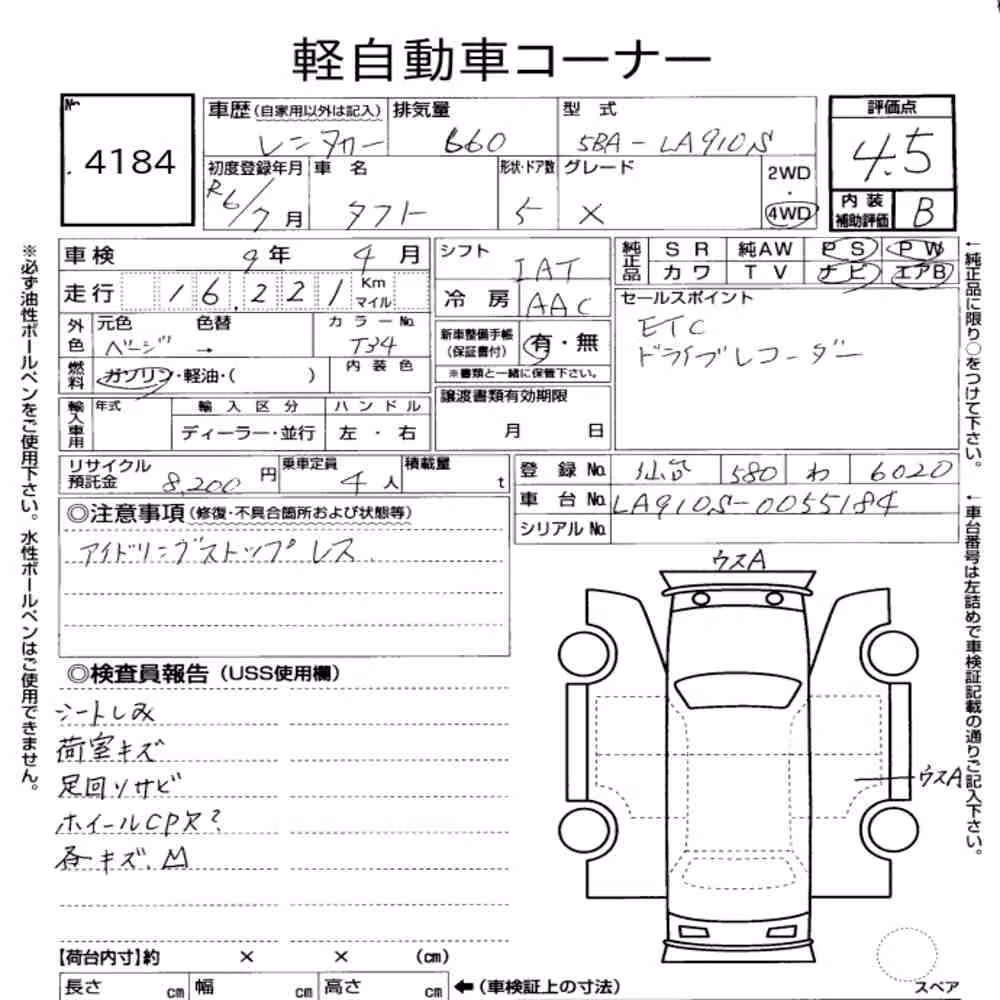 軽自動車コーナー
No. 4184
車歴(自家用以外は記入) 排気量 型式 評価点
レンタカー 660 5BA-LA910S 4.5
初度登録年月 車名 形状・ドア数 グレード 2WD・4WD
R6/7月 タフト 5 X
内装補助評価 B
車検 9年 4月 シフト IAT
純正品 SR 純AW PS PW
カワ TV ナビ エアB
走行 16,221 Km マイル 冷房 AAC
セールスポイント
ETC
ドライブレコーダー
外色 元色 色替 カラーNo.
ベージ → T34
新車整備手帳(保証書付) 有・無
※書類と一緒に保管下さい。
燃料 ガソリン・軽油・( ) 内装色
輸入車用 年式 輸入区分 ハンドル
ディーラー・並行 左・右
譲渡書類有効期限
月 日
リサイクル預託金 8,200円 乗車定員 4人 積載量 t
登録No. 仙台 580 わ 6020
車台No. LA910S-0055184
シリアルNo.
◎注意事項(修復・不具合箇所および状態等)
アイドリングストップレス
◎検査員報告(USS使用欄)
シートしみ
荷室キズ
足回りサビ
各キズ、M
ウスA
ウスA
【荷台内寸】約 × × (cm)
長さ cm 幅 cm 高さ cm ←(車検証上の寸法)
スペア
※必ず油性ボールペンをご使用下さい。水性ボールペンはご使用できません。
←純正品に限り○をつけて下さい。
←車台番号は左詰めで車検証記載の通りご記入下さい。